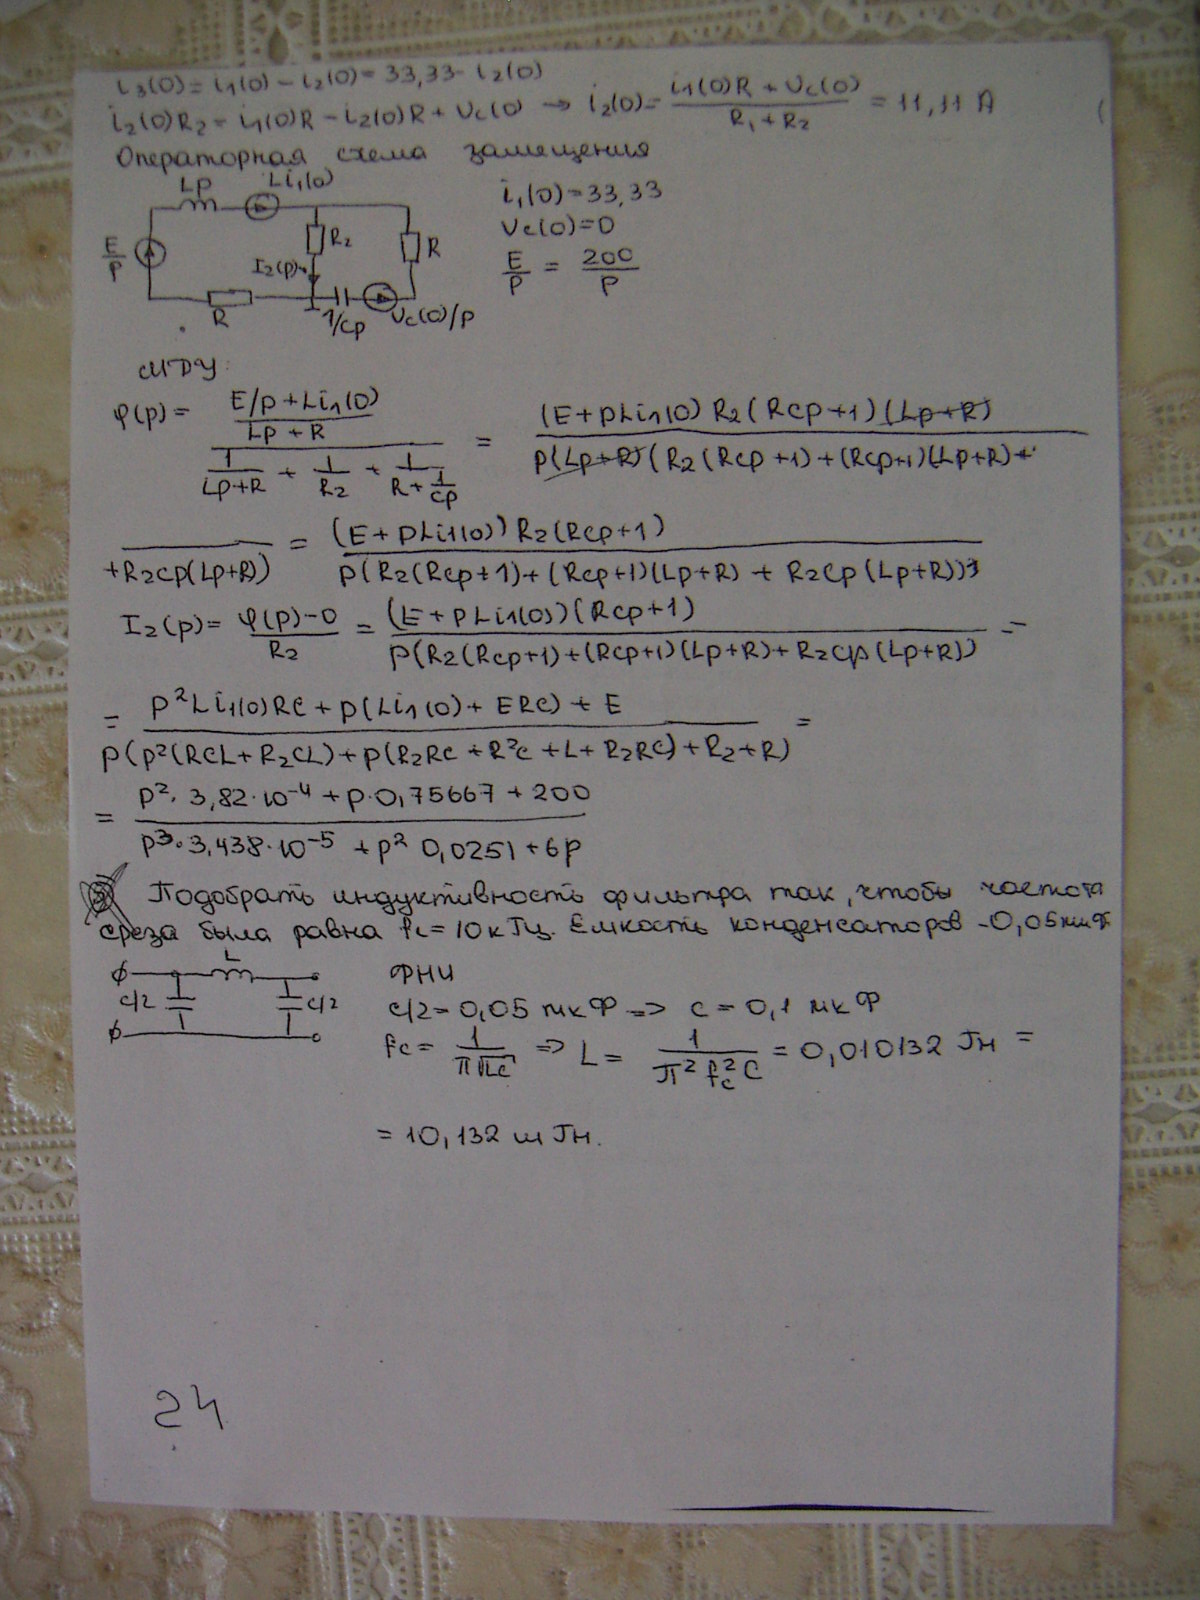 i₃(0) = i₁(0) − i₂(0) = 33,33 − i₂(0)
i₂(0)R₂ = i₁(0)R − i₂(0)R + Uc(0) → i₂(0) = (i₁(0)R + Uc(0))/(R₁ + R₂) = 11,11 А
Операторная схема замещения
Lp Li₁(0)
i₁(0) = 33,33
E/P R₂ R
Uc(0) = 0
I₂(p)
E/P = 200/P
R 1/Cp Uc(0)/p
МДУ
φ(p) = ((E/p + Li₁(0))/(Lp + R))/(1/(Lp+R) + 1/R₂ + 1/(R + 1/Cp)) = ((E + pLi₁(0)) R₂(Rcp+1)(Lp+R))/(p(Lp+R)(R₂(Rcp+1) + (Rcp+1)(Lp+R) +
+R₂cp(Lp+R)) = ((E + pLi₁(0)) R₂(Rcp+1))/(p(R₂(Rcp+1) + (Rcp+1)(Lp+R) + R₂Cp(Lp+R)))
I₂(p) = (φ(p) − 0)/R₂ = ((E + pLi₁(0))(Rcp+1))/(p(R₂(Rcp+1) + (Rcp+1)(Lp+R) + R₂cp(Lp+R))) =
= (p²Li₁(0)RC + p(Li₁(0) + ERC) + E)/(p(p²(RCL + R₂CL) + p(R₂RC + R²C + L + R₂RC) + R₂ + R)) =
= (p²·3,82·10⁻⁴ + p·0,75667 + 200)/(p³·3,438·10⁻⁵ + p² 0,0251 + 6p)
Подобрать индуктивность фильтра так, чтобы частота
среза была равна fc = 10 кГц. Емкость конденсаторов - 0,05 мкФ
L
ФНЧ
c/2 c/2
c/2 = 0,05 мкФ => c = 0,1 мкФ
fc = 1/(π√LC) => L = 1/(π² fc² C) = 0,010132 Гн =
= 10,132 мГн.
24